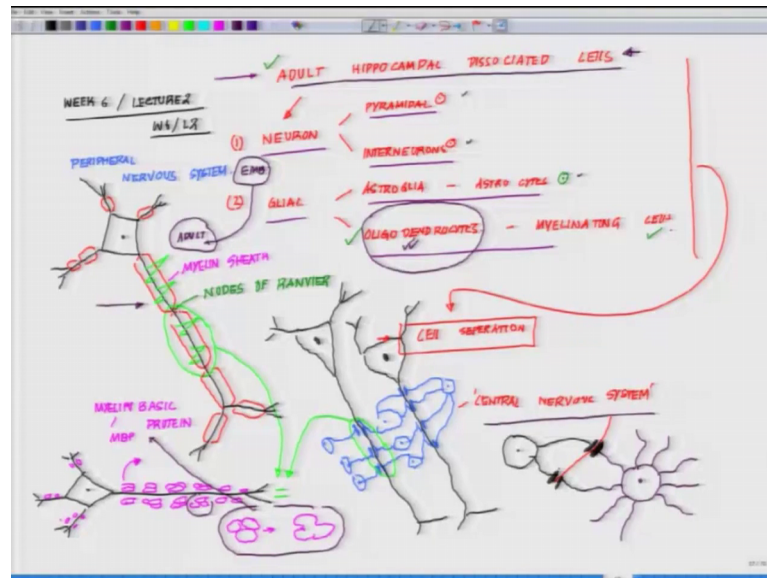 ADULT HIPPOCAMPAL DISSOCIATED CELLS
WEEK 6 / LECTURE 2
W6 / L2
(1) NEURON
PYRAMIDAL
INTERNEURONS
PERIPHERAL
NERVOUS SYSTEM
EMB
(2) GLIAL
ASTROGLIA - ASTROCYTES
ADULT
OLIGO DENDROCYTES - MYELINATING CELLS
MYELIN SHEATH
NODES OF RANVIER
CELL SEPERATION
'CENTRAL NERVOUS SYSTEM'
MYELIN BASIC
PROTEIN
MBP